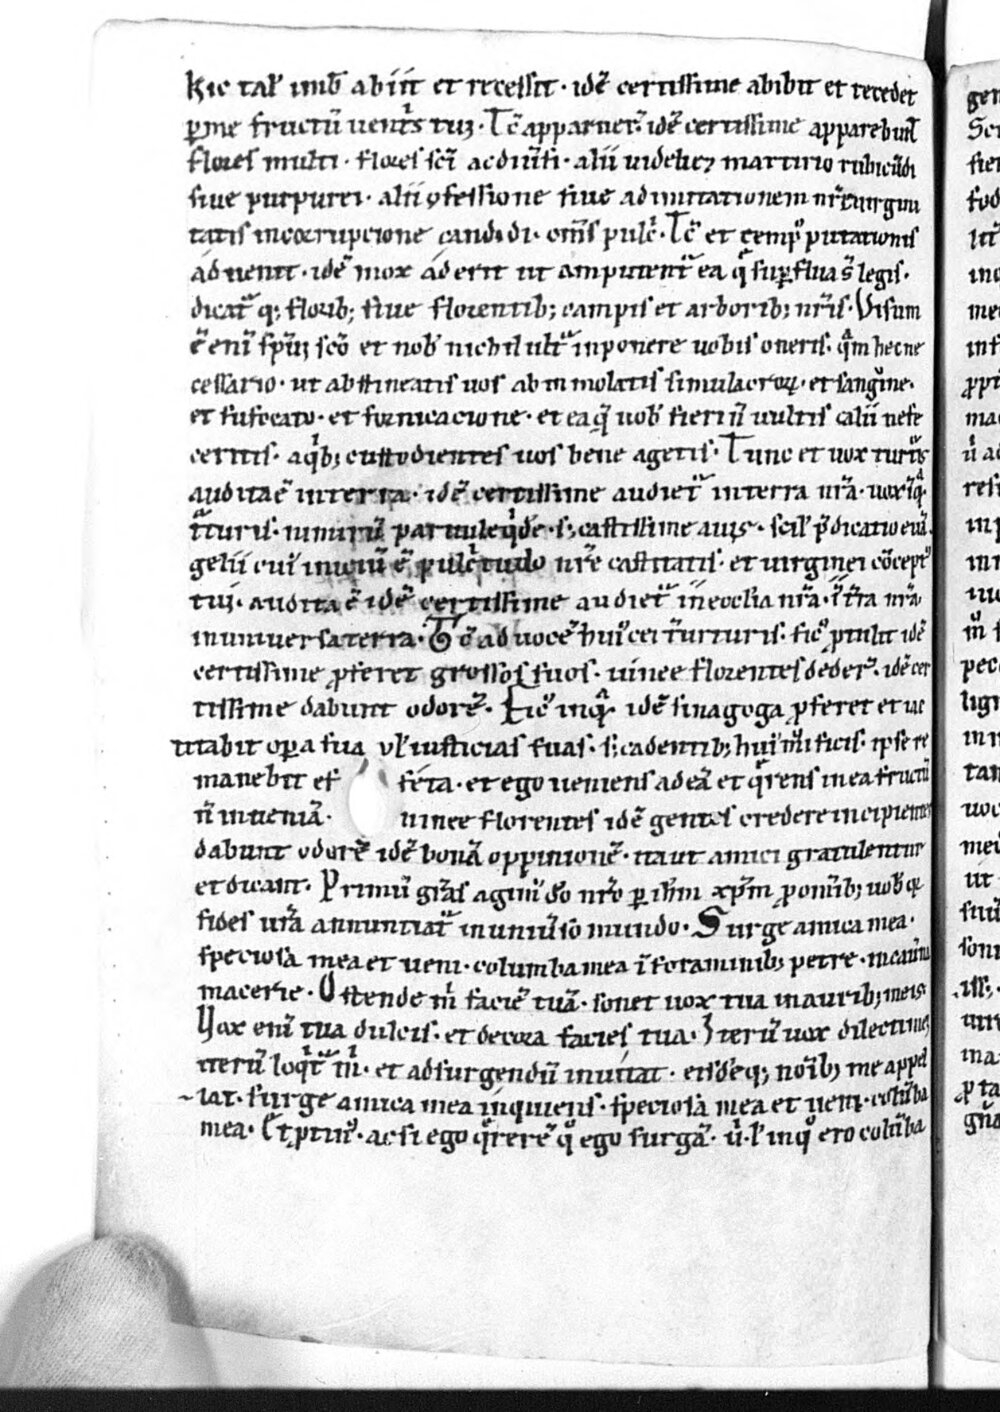 hic tal' imb̄ abiit et recessit · idē certissime abibit et recedet
ꝑ me fructū uent̄s tui · Tc̄ apparuer̄ · idē certissime apparebunt
flores multi · flores sc̄i ac diuīsi · alii uidelicꝫ martirio rubicūdi
siue purpurei · alii ꝯfessione siue ad imitationem nr̄e uirgini
tatis incorrupcione candidi · om̄s pulc̄ · Tc̄ et temp' putationis
aduenit · idē mox aderit ut amputent̄ ea q̄ suꝑflua s̄ legis ·
dicat̄ qꝫ florib; siue florentib; campis et arborib; nr̄is · Visum
ē eni spū sc̄o et nob' nichil ult̄ inponere uobis oneris · q̄m hec ne
cessario · ut abstineatis uos ab inmolatis simulacroꝝ · et sanguine ·
et sufocato · et fornicacione · et ea q̄ uob' fieri n̄ uultis alii ne fe
ceritis · a q̄b; custodientes uos bene agetis · Tunc et uox turt̄is
audita ē in terra · idē certissime audiet̄ in terra nr̄a · uox inq̄
t̄turis · nimirū paruule q̄de · s; castissime auis · scil' p̄dicatio euā
gelii cui' iniciū ē pulc̄tudo nr̄e castitatis · et uirginei cōcept'
tui · audita ē idē certissime audiet̄ in eoclia nr̄a · ī t̄ra nr̄a
in uniuersa terra · Tc̄ ad uocē hui'cei t̄turis · fic' ꝓtulit idē
certissime ꝓferet grossos suos · uinee florentes dedeř · idē cer
tissime dabunt odorē · Fic' inq̄ idē sinagoga ꝓferet et uic
titabit oꝑa sua ul' iusticias suas · s; cadentib; hui'm̄i ficis · ipse re
manebit ef feta · et ego ueniens ad eā et q̄rens in ea fructū
n̄ inueniā · uinee florentes idē gentes credere incipientes
dabunt odorē idē bonā oppinionē · ita ut amici gratulentur
et dicant · Primū gr̄as agim' dō nr̄o ꝑ ih̄m xp̄m ꝓ om̄ib; uob' qꝫ
fides ur̄a annuntiat̄ in uniūso mundo · Surge amica mea ·
speciosa mea et ueni · columba mea ī foraminib; petre · in cauīna
macerie · Ostende m̄ faciē tuā · sonet uox tua in aurib; meis
Vox eni tua dulcis · et decora facies tua · Iterū uox dilecti mei
iterū loq̄t̄ m̄ · et ad surgendū inuitat · eisdēq; noīb; me appel
lat · surge amica mea inquiens · speciosa mea et ueni · colūba
mea · ac si ego q̄rerē q' ego surgā · u̅ · l' inq' ero colūba